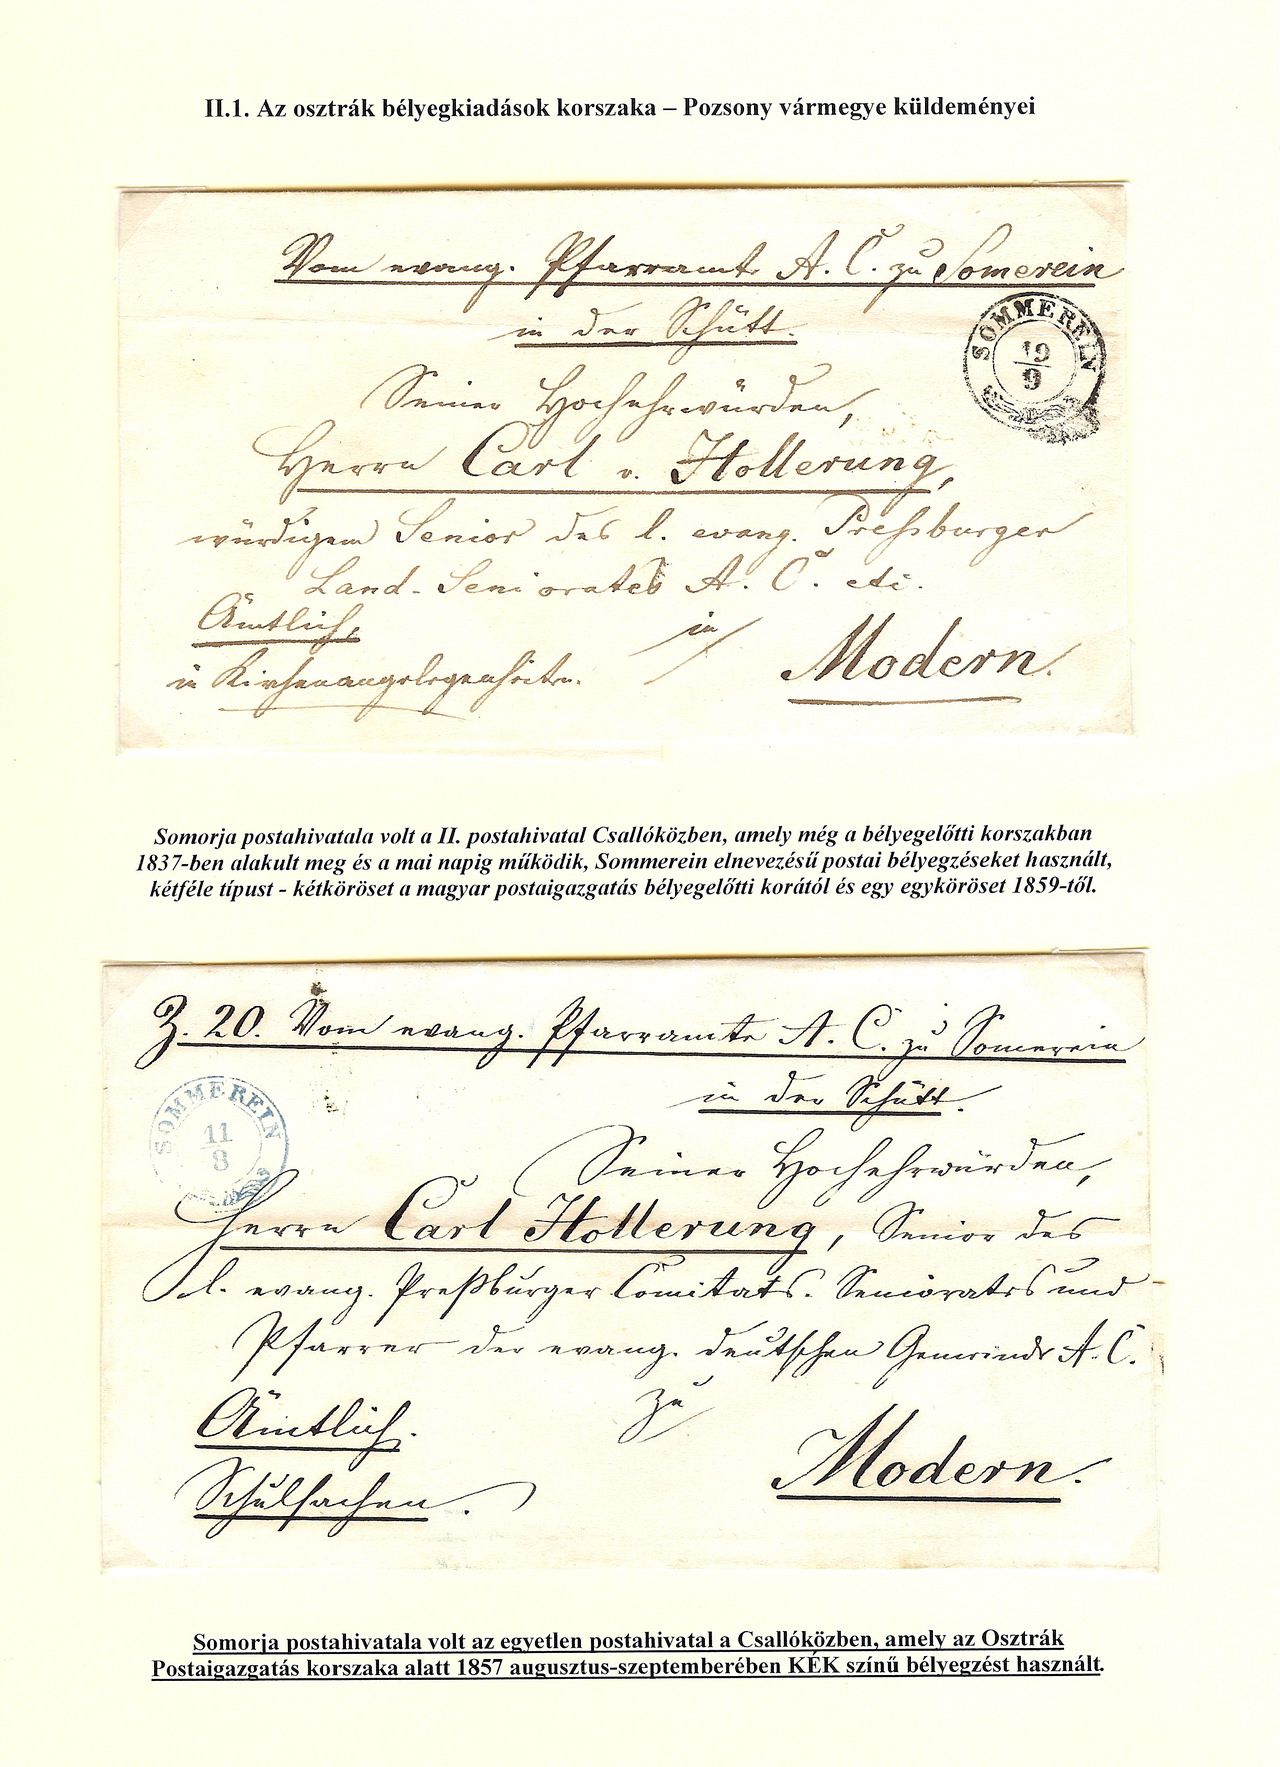 II.1. Az osztrák bélyegkiadások korszaka – Pozsony vármegye küldeményei
Vom evang. Pfarramte A. C. zu Somerein
in der Schütt.
SOMMEREIN
19
9
Seiner Hochehrwürden,
Herrn Carl v. Hollerung,
würdigem Senior des l. evang. Preßburger
Land-Seniorates A. C. etc.
Ämtlich,
in
Modern.
in Kirchenangelegenheiten.
Somorja postahivatala volt a II. postahivatal Csallóközben, amely még a bélyegelőtti korszakban
1837-ben alakult meg és a mai napig működik, Sommerein elnevezésű postai bélyegzéseket használt,
kétféle típust - kétköröset a magyar postaigazgatás bélyegelőtti korától és egy egyköröset 1859-től.
Z. 20. Vom evang. Pfarramte A. C. zu Somerein
in der Schütt.
SOMMEREIN
11
8
Seiner Hochehrwürden,
Herrn Carl Hollerung, Senior des
l. evang. Preßburger Comitats-Seniorates und
Pfarrer der evang. deutschen Gemeinde A. C.
Ämtlich.
zu
Modern.
Schulsachen.
Somorja postahivatala volt az egyetlen postahivatal a Csallóközben, amely az Osztrák
Postaigazgatás korszaka alatt 1857 augusztus-szeptemberében KÉK színű bélyegzést használt.